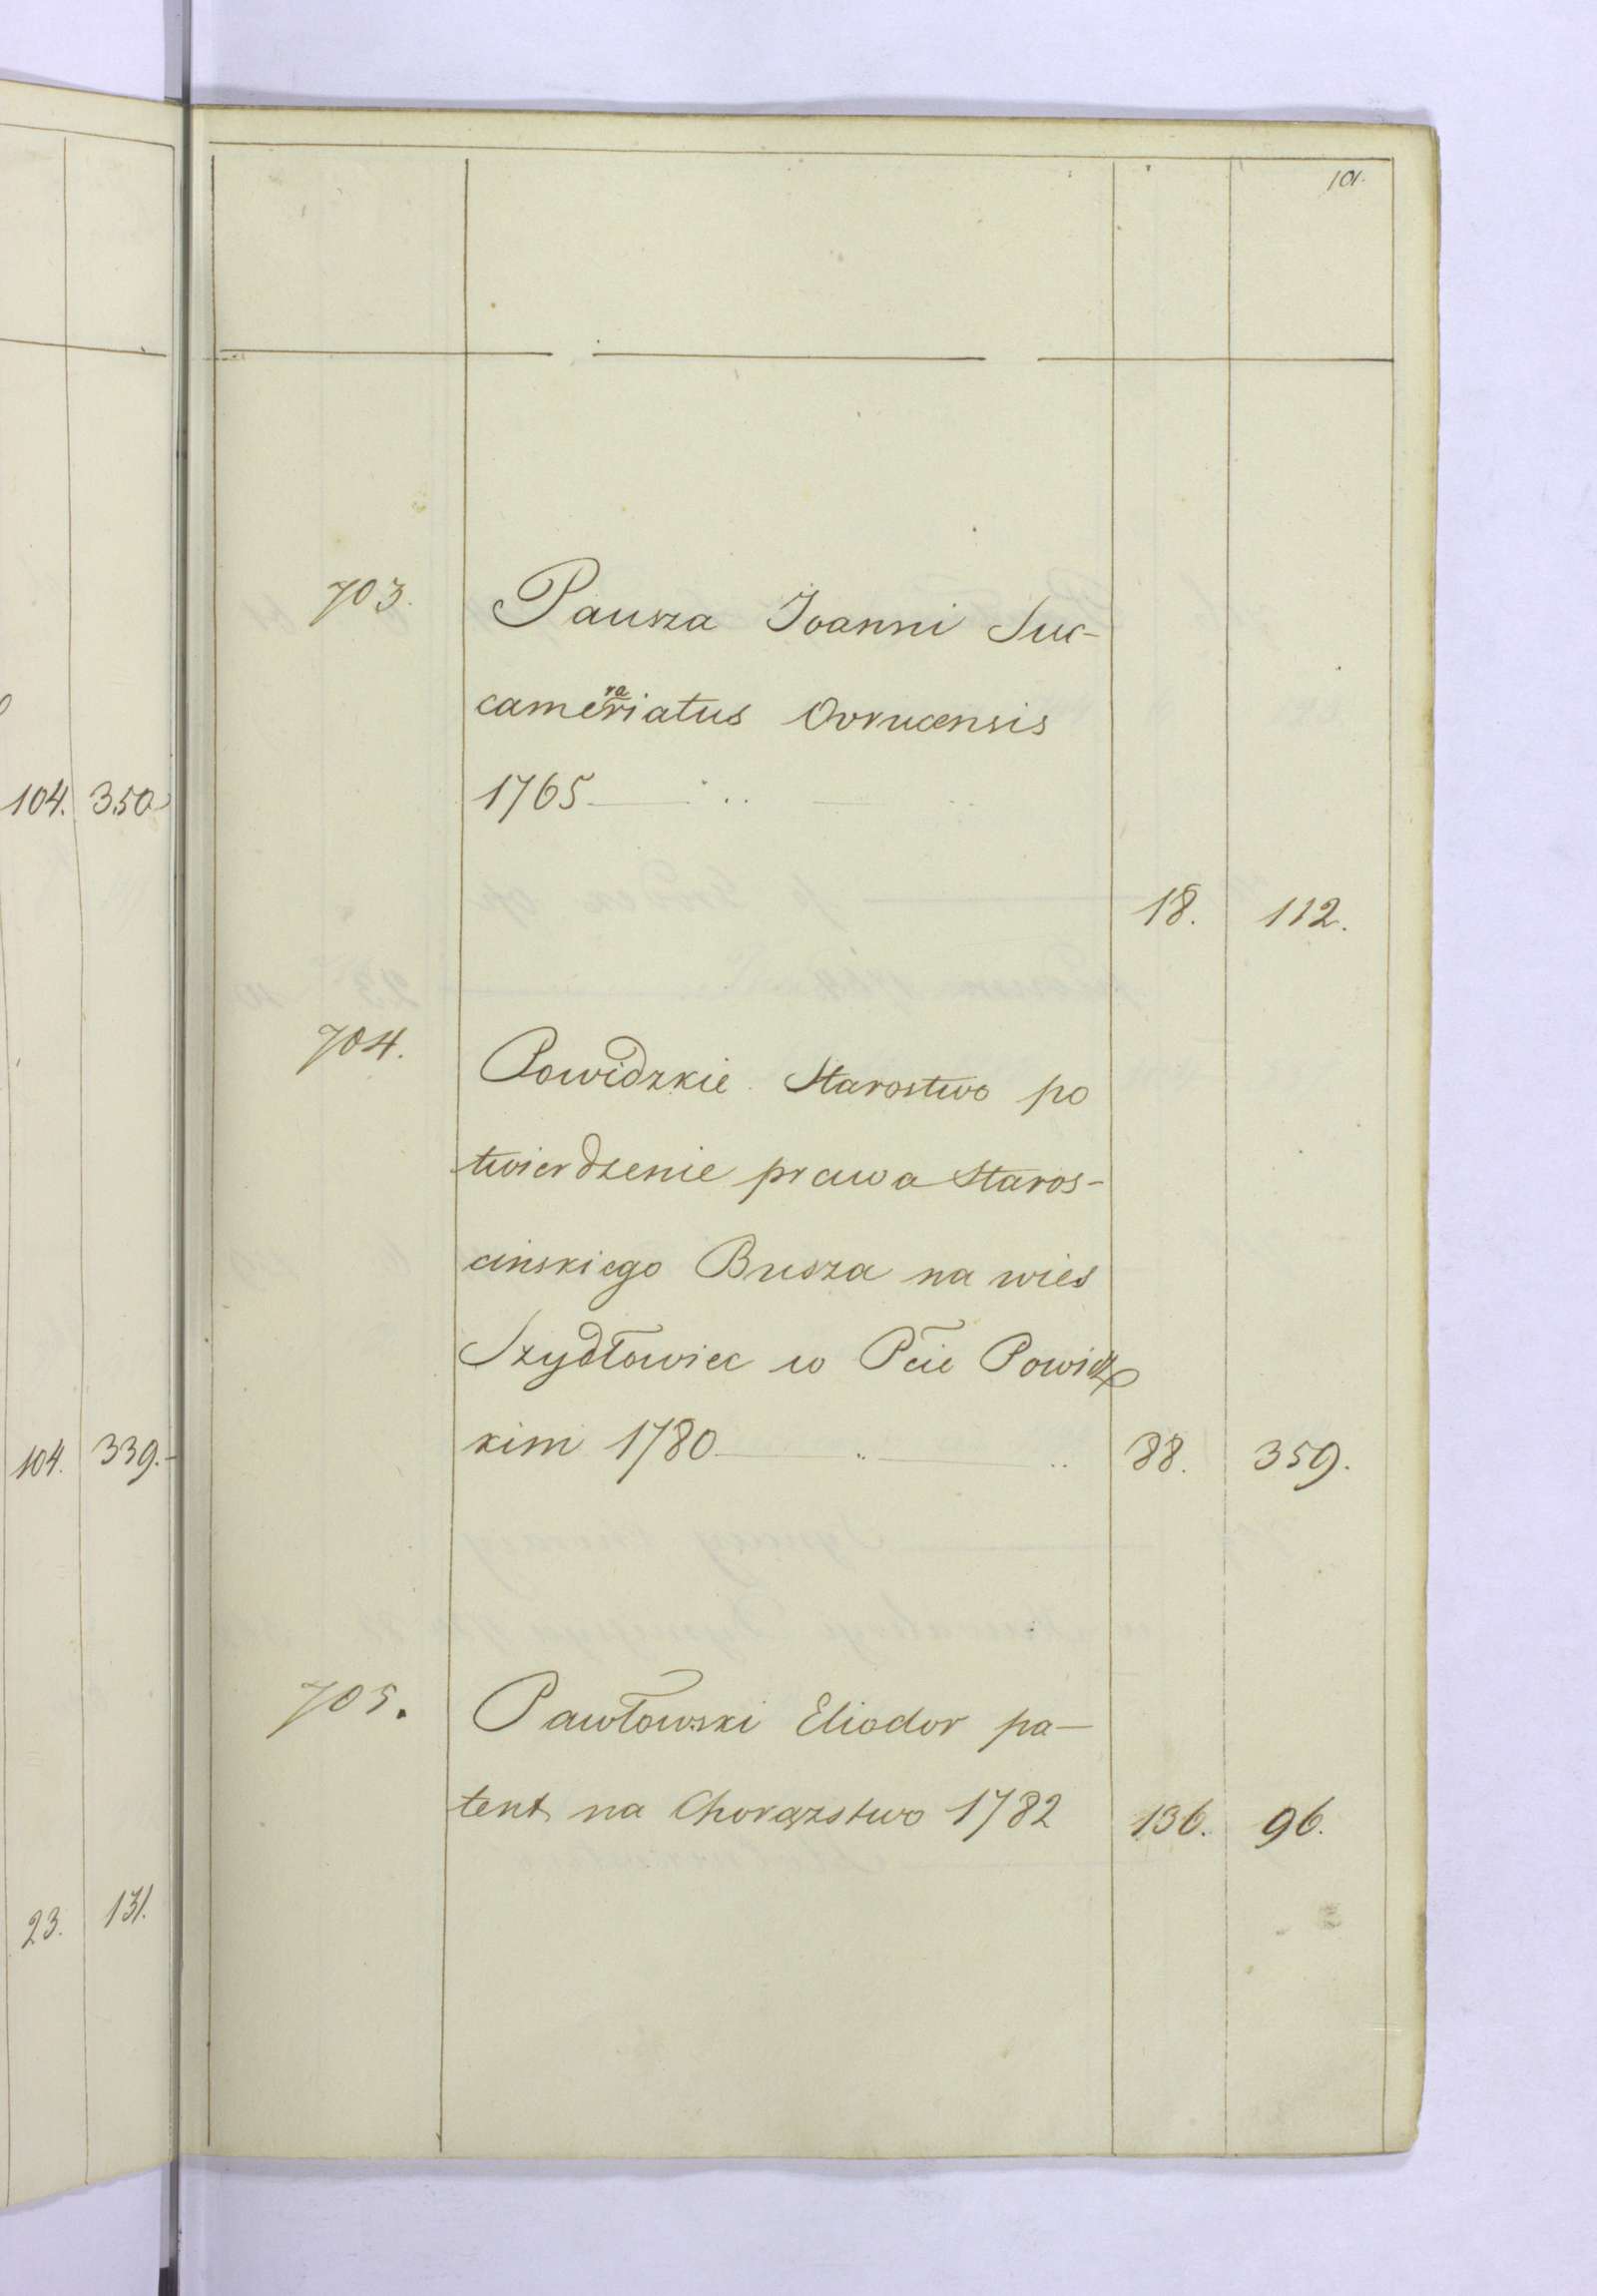 101.
703. Pausza Joanni Suc-
camerariatus Ovrucensis
1765
18. 112.
704. Powidzkie Starostwo po
twierdzenie prawa Staros-
cinskiego Busza na wies
Szydłowiec w Pcie Powidz
kim 1780 88. 359.
705. Pawłowski Eliodor pa-
tent na Chorązstwo 1782 136. 96.
104. 350
104. 339.-
23. 131.